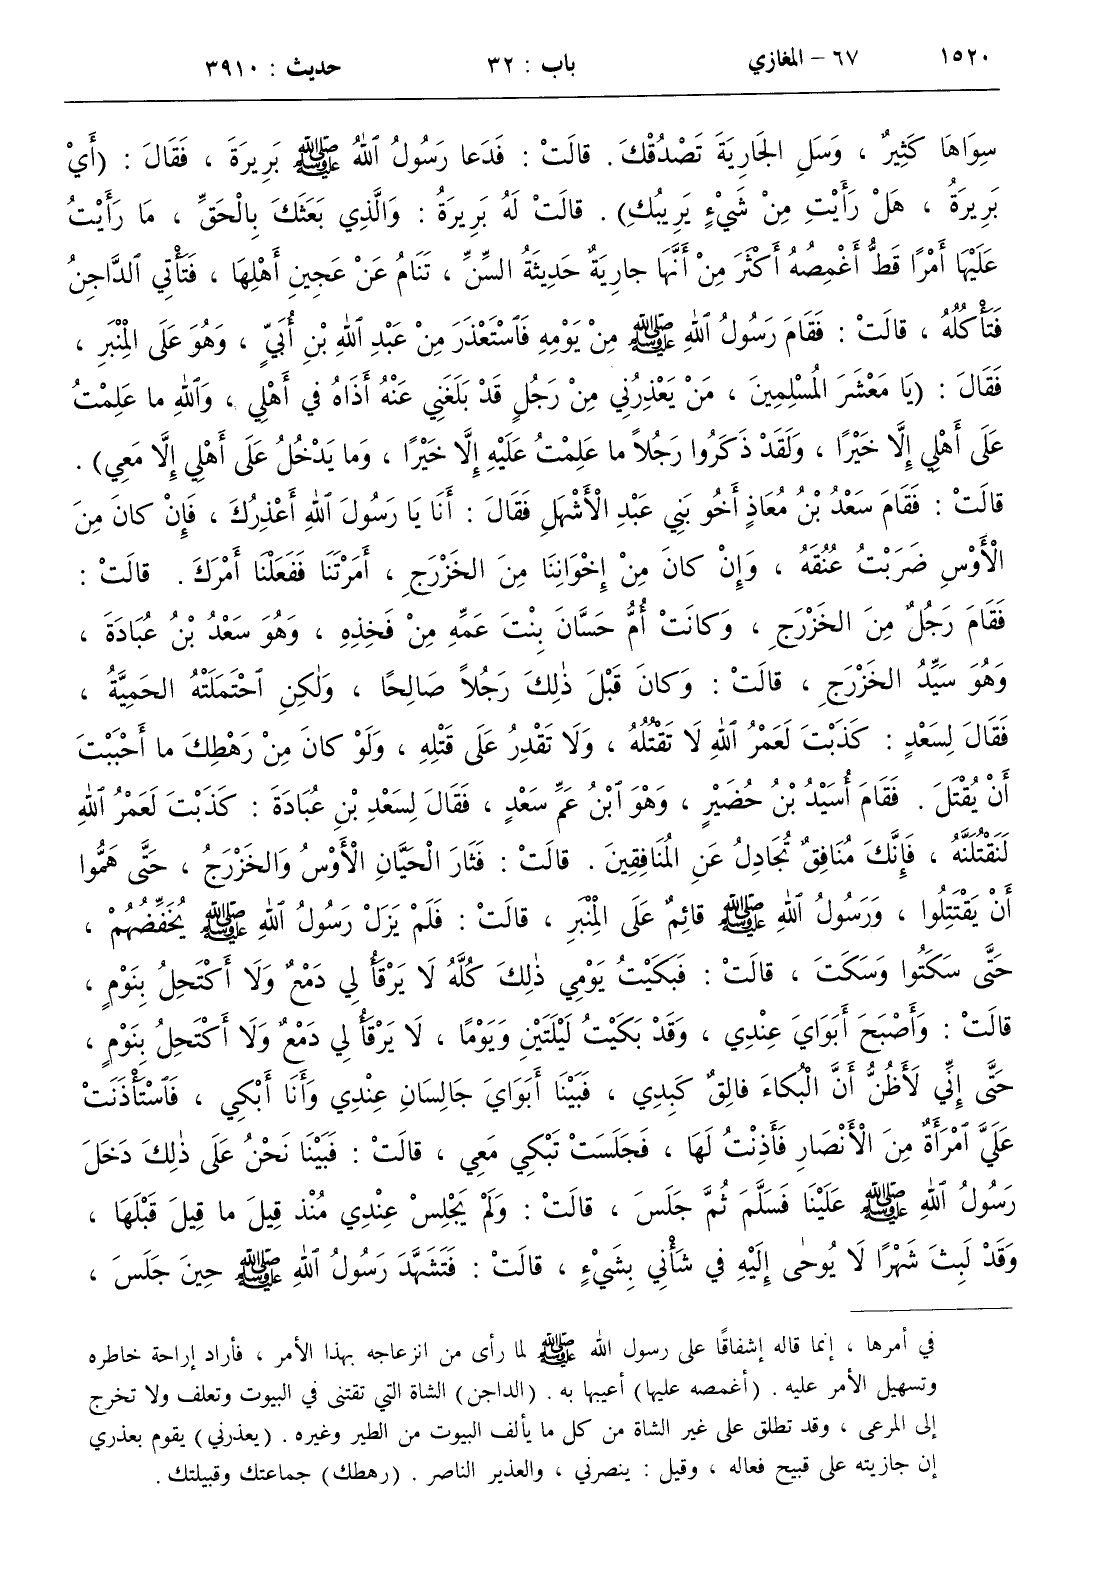 ١٥٢٠ ٦٧ – المغازي باب : ٣٢ حديث : ٣٩١٠
سِوَاهَا كَثِيرٌ ، وَسَلِ الجَارِيَةَ تَصْدُقْكَ . قالَتْ : فَدَعا رَسُولُ ٱللهُ ﷺ بَرِيرَةَ ، فَقَالَ : (أَيْ
بَرِيرَةُ ، هَلْ رَأَيْتِ مِنْ شَيْءٍ يَرِيبُكِ) . قالَتْ لَهُ بَرِيرَةُ : وَالَّذِي بَعَثَكَ بِالْحَقِّ ، مَا رَأَيْتُ
عَلَيْهَا أَمْرًا قَطُّ أَغْمِصُهُ أَكْثَرَ مِنْ أَنَّهَا جارِيَةٌ حَدِيثَةُ السِّنِّ ، تَنَامُ عَنْ عَجِينِ أَهْلِهَا ، فَتَأْتِي ٱلدَّاجِنُ
فَتَأْكُلُهُ ، قالَتْ : فَقَامَ رَسُولُ ٱللهِ ﷺ مِنْ يَوْمِهِ فَٱسْتَعْذَرَ مِنْ عَبْدِ ٱللهِ بْنِ أُبَيٍّ ، وَهُوَ عَلَى الْمِنْبَرِ ،
فَقَالَ : (يَا مَعْشَرَ المُسْلِمِينَ ، مَنْ يَعْذِرُنِي مِنْ رَجُلٍ قَدْ بَلَغَنِي عَنْهُ أَذَاهُ في أَهْلِي ، وَٱللهِ ما عَلِمْتُ
عَلَى أَهْلِي إِلَّا خَيْرًا ، وَلَقَدْ ذَكَرُوا رَجُلاً ما عَلِمْتُ عَلَيْهِ إِلَّا خَيْرًا ، وَما يَدْخُلُ عَلَى أَهْلِي إِلَّا مَعِي) .
قالَتْ : فَقَامَ سَعْدُ بْنُ مُعَاذٍ أَخُو بَنِي عَبْدِ الْأَشْهَلِ فَقَالَ : أَنَا يَا رَسُولَ ٱللهِ أَعْذِرُكَ ، فَإِنْ كانَ مِنَ
الْأَوْسِ ضَرَبْتُ عُنُقَهُ ، وَإِنْ كانَ مِنْ إِخْوَانِنَا مِنَ الخَزْرَجِ ، أَمَرْتَنَا فَفَعَلْنَا أَمْرَكَ . قالَتْ :
فَقَامَ رَجُلٌ مِنَ الخَزْرَجِ ، وَكانَتْ أُمُّ حَسَّانَ بِنْتَ عَمِّهِ مِنْ فَخِذِهِ ، وَهُوَ سَعْدُ بْنُ عُبَادَةَ ،
وَهُوَ سَيِّدُ الخَزْرَجِ ، قالَتْ : وَكانَ قَبْلَ ذٰلِكَ رَجُلاً صَالِحًا ، وَلٰكِنِ ٱحْتَمَلَتْهُ الحَمِيَّةُ ،
فَقَالَ لِسَعْدٍ : كَذَبْتَ لَعَمْرُ ٱللهِ لَا تَقْتُلُهُ ، وَلَا تَقْدِرُ عَلَى قَتْلِهِ ، وَلَوْ كانَ مِنْ رَهْطِكَ ما أَحْبَبْتَ
أَنْ يُقْتَلَ . فَقَامَ أُسَيْدُ بْنُ حُضَيْرٍ ، وَهْوَ ٱبْنُ عَمِّ سَعْدٍ ، فَقَالَ لِسَعْدِ بْنِ عُبَادَةَ : كَذَبْتَ لَعَمْرُ ٱللهِ
لَنَقْتُلَنَّهُ ، فَإِنَّكَ مُنَافِقٌ تُجَادِلُ عَنِ المُنَافِقِينَ . قالَتْ : فَثَارَ الْحَيَّانِ الْأَوْسُ وَالخَزْرَجُ ، حَتَّى هَمُّوا
أَنْ يَقْتَتِلُوا ، وَرَسُولُ ٱللهِ ﷺ قائِمٌ عَلَى الْمِنْبَرِ ، قالَتْ : فَلَمْ يَزَلْ رَسُولُ ٱللهِ ﷺ يُخَفِّضُهُمْ ،
حَتَّى سَكَتُوا وَسَكَتَ ، قالَتْ : فَبَكَيْتُ يَوْمِي ذٰلِكَ كُلَّهُ لَا يَرْقَأُ لِي دَمْعٌ وَلَا أَكْتَحِلُ بِنَوْمٍ ،
قالَتْ : وَأَصْبَحَ أَبَوَايَ عِنْدِي ، وَقَدْ بَكَيْتُ لَيْلَتَيْنِ وَيَوْمًا ، لَا يَرْقَأُ لِي دَمْعٌ وَلَا أَكْتَحِلُ بِنَوْمٍ ،
حَتَّى إِنِّي لَأَظُنُّ أَنَّ الْبُكاءَ فالِقٌ كَبِدِي ، فَبَيْنَا أَبَوَايَ جَالِسَانِ عِنْدِي وَأَنَا أَبْكِي ، فَٱسْتَأْذَنَتْ
عَلَيَّ ٱمْرَأَةٌ مِنَ الْأَنْصَارِ فَأَذِنْتُ لَهَا ، فَجَلَسَتْ تَبْكِي مَعِي ، قالَتْ : فَبَيْنَا نَحْنُ عَلَى ذٰلِكَ دَخَلَ
رَسُولُ ٱللهِ ﷺ عَلَيْنَا فَسَلَّمَ ثُمَّ جَلَسَ ، قالَتْ : وَلَمْ يَجْلِسْ عِنْدِي مُنْذُ قِيلَ ما قِيلَ قَبْلَهَا ،
وَقَدْ لَبِثَ شَهْرًا لَا يُوحٰى إِلَيْهِ في شَأْنِي بِشَيْءٍ ، قالَتْ : فَتَشَهَّدَ رَسُولُ ٱللهِ ﷺ حِينَ جَلَسَ ،
في أمرها ، إنما قاله إشفاقًا على رسول الله ﷺ لما رأى من انزعاجه بهذا الأمر ، فأراد إراحة خاطره
وتسهيل الأمر عليه . (أغمصه عليها) أعيبها به . (الداجن) الشاة التي تقتنى في البيوت وتعلف ولا تخرج
إلى المرعى ، وقد تطلق على غير الشاة من كل ما يألف البيوت من الطير وغيره . (يعذرني) يقوم بعذري
إن جازيته على قبيح فعاله ، وقيل : ينصرني ، والعذير الناصر . (رهطك) جماعتك وقبيلتك .